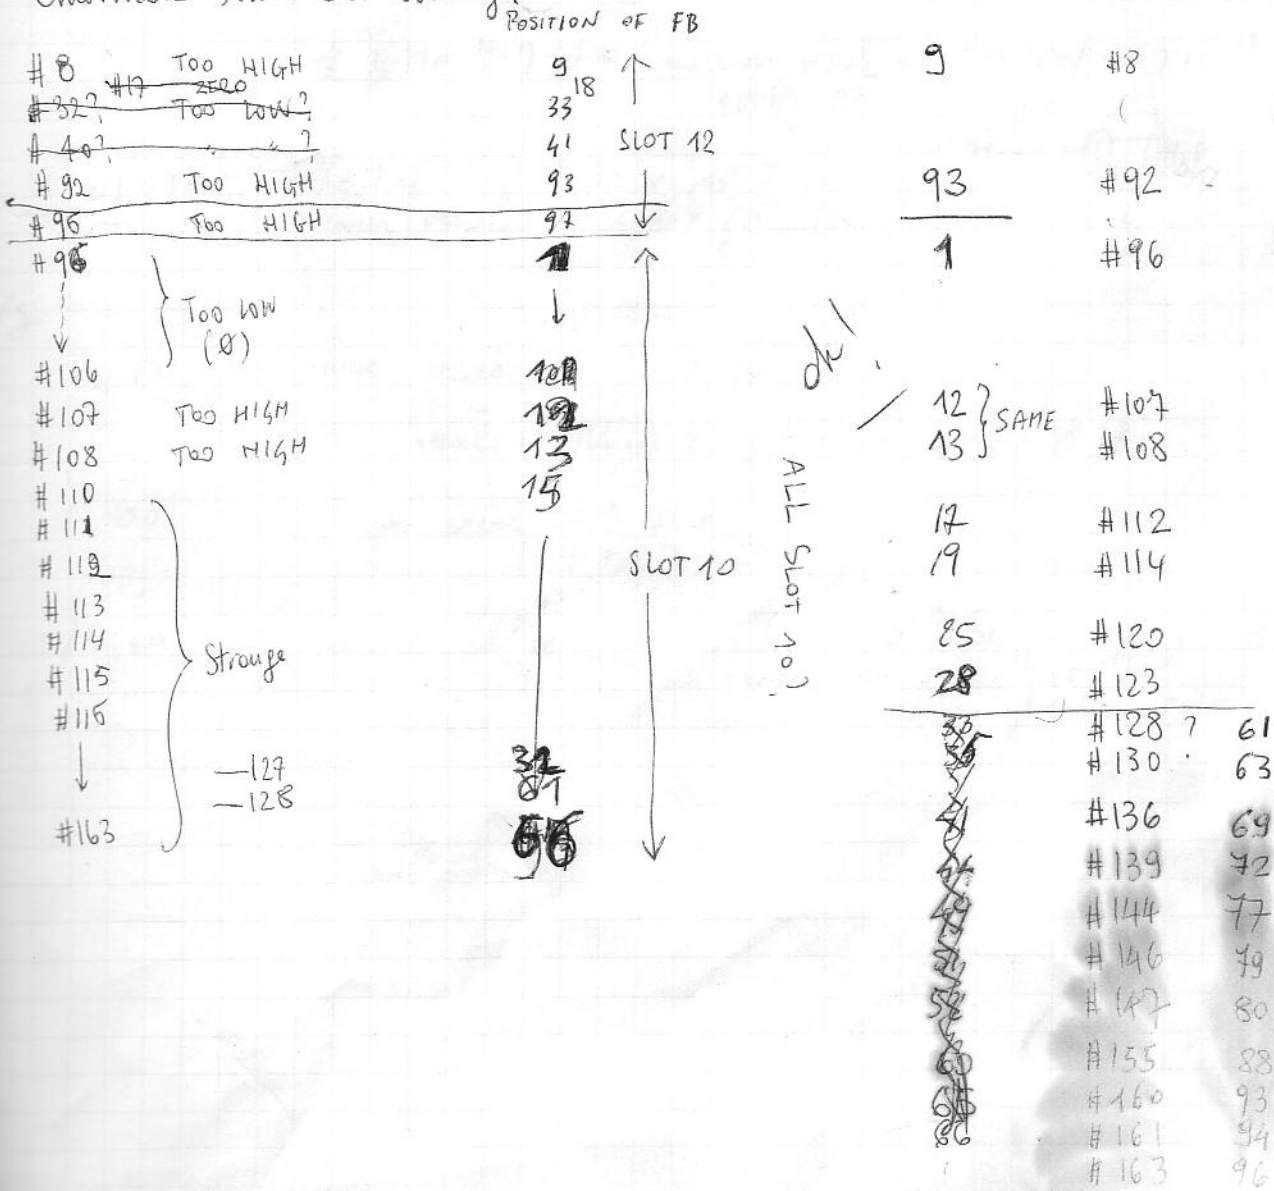 POSITION OF FB
#8 TOO HIGH 9
#17 ZERO 18
#32? TOO LOW? 33
#40? " " ? 41 SLOT 12
#92 TOO HIGH 93
#96 TOO HIGH 97
#96 1
TOO LOW
(Ø)
#106
#107 TOO HIGH 12
#108 TOO HIGH 13
#110 15
#111
#112 SLOT 10
#113
#114
#115 Strange
#116
—127 32
—128 61
#163 96
ALL SLOT 10?
9 #8
93 #92
1 #96
ok!
12 #107
SAME
13 #108
17 #112
19 #114
25 #120
28 #123
33 #128 ? 61
35 #130 63
41 #136 69
44 #139 72
49 #144 77
#146 79
#147 80
60 #155 88
65 #160 93
66 #161 94
#163 96